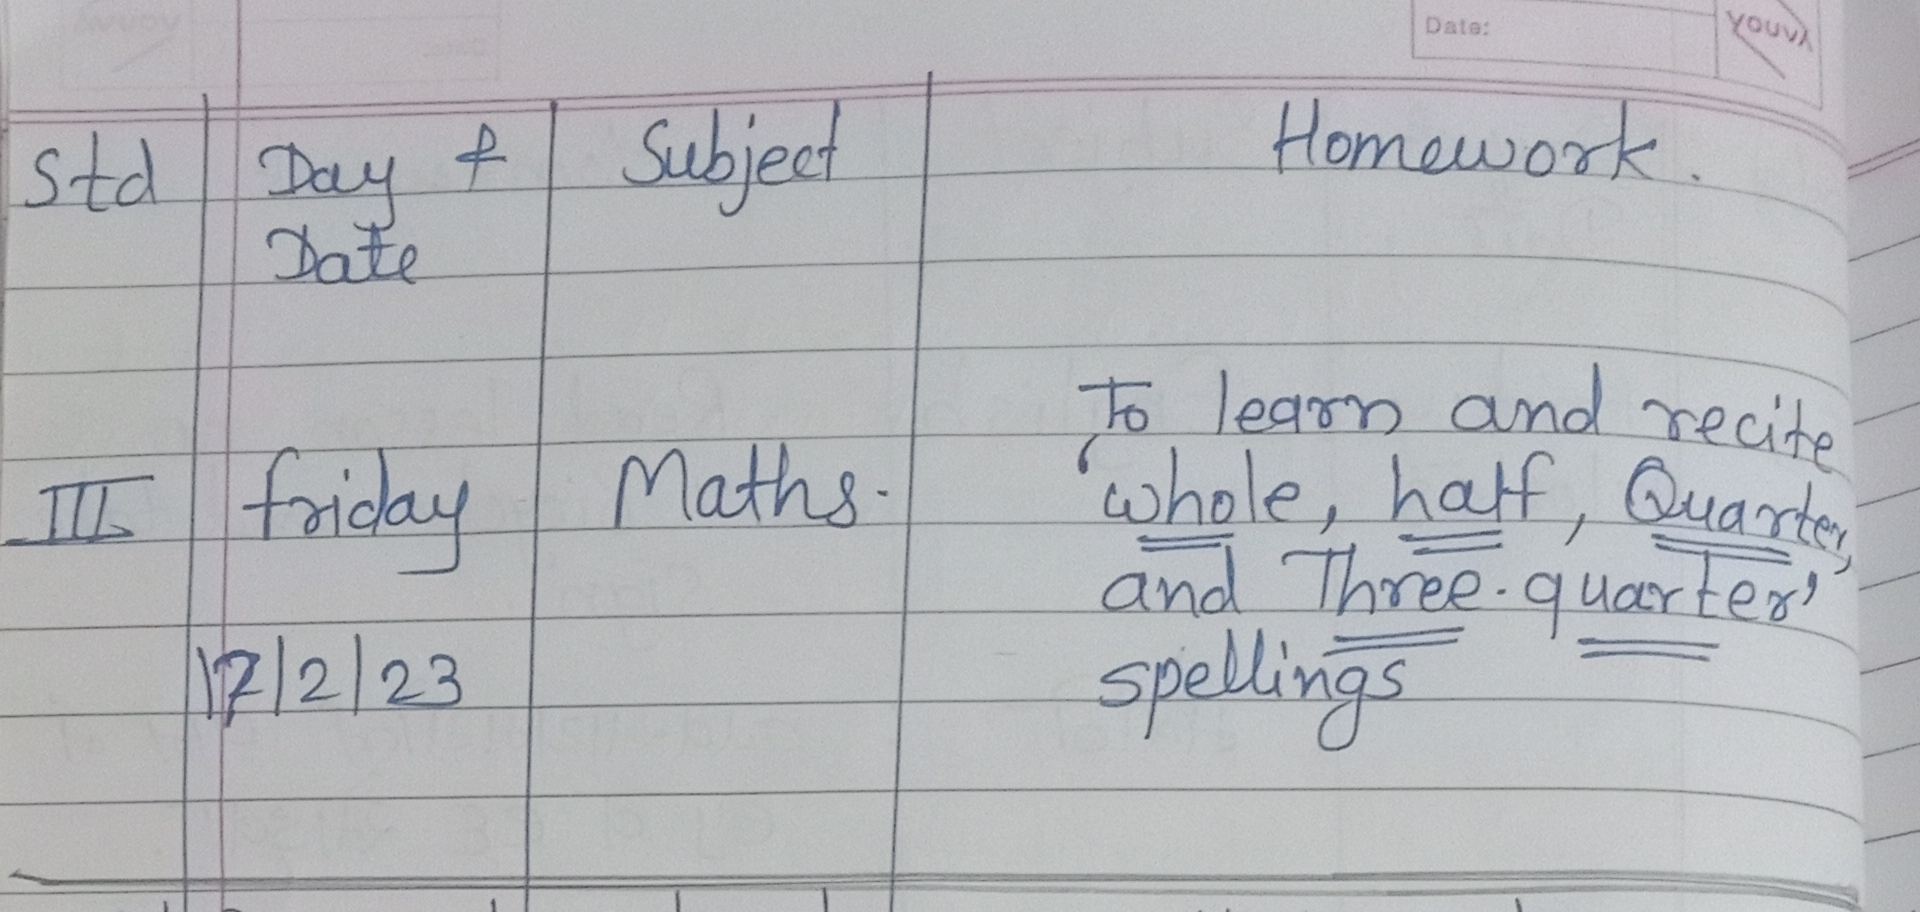 Date:
YOUVA
Std Day & Subject Homework.
Date
To learn and recite
III friday Maths. 'whole, half, Quarter,
and Three-quarter'
17/2/23 spellings